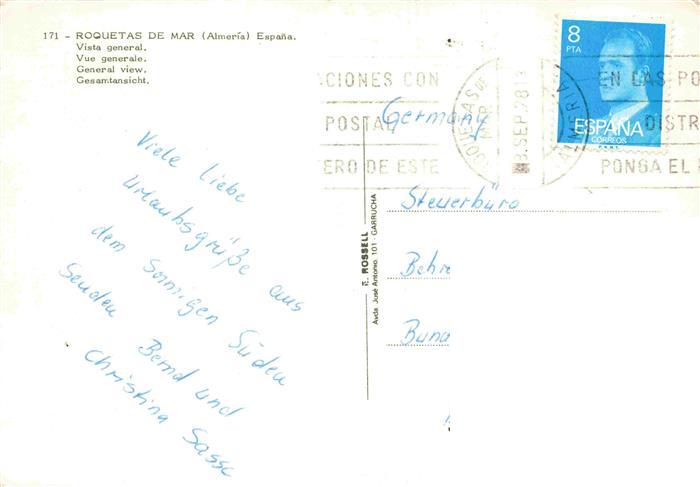 171 - ROQUETAS DE MAR (Almería) España.
Vista general.
Vue generale.
General view.
Gesamtansicht.
8
PTA
ESPAÑA
CORREOS
CIONES CON
POSTAL
ERO DE ESTE
ROQUETAS DE MAR
SEP.78
ALMERIA
EN LAS PO
DISTR
PONGA EL
Germany
Viele liebe
Urlaubsgrüße aus
dem sonnigen Süden
senden Bernd und
Christina Sasse
Steuerbüro
Behre
Buna
E. ROSSELL
Avda José Antonio, 101 - GARRUCHA